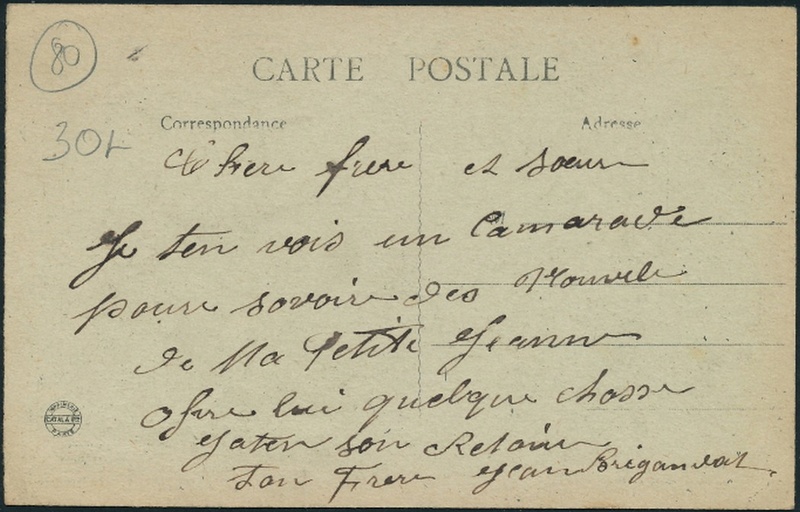 80
CARTE POSTALE
30L
Correspondance
Adresse
Chere frere et soeur
Je ten vois un Camarade
poure savoire des Nouvele
de Ma Petite Jeanne
ofre lui quelque chosse
Jaten son Retoure
Ton Frere Jean Brigandat
IMPRIMERIE
CATALA
PARIS